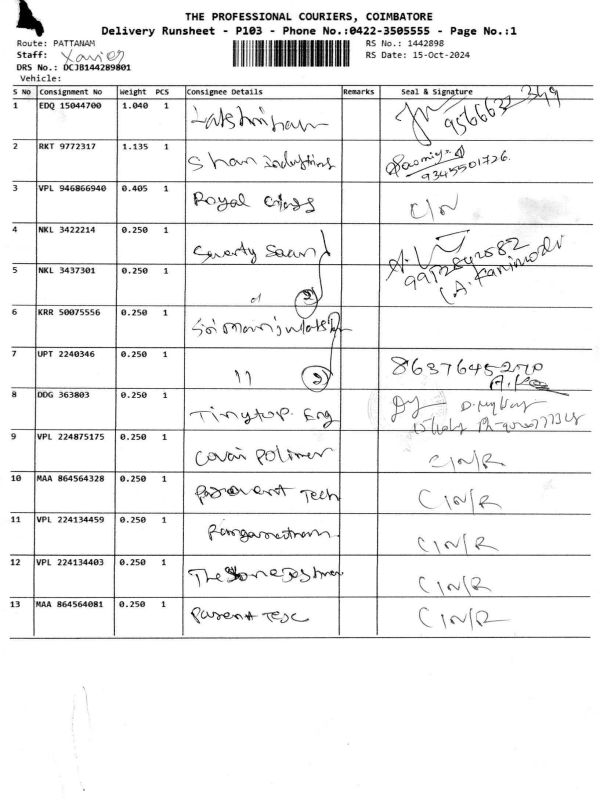 THE PROFESSIONAL COURIERS, COIMBATORE
Delivery Runsheet - P103 - Phone No.:0422-3505555 - Page No.:1
Route: PATTANAM RS No.: 1442898
Staff: Xavier RS Date: 15-Oct-2024
DRS No.: DCJB144289801
Vehicle:
S No Consignment No Weight PCS Consignee Details Remarks Seal & Signature
1 EDQ 15044700 1.040 1 9566632349
2 RKT 9772317 1.135 1 Shan industries 9345501726
3 VPL 946866940 0.405 1 Royal C/N
4 NKL 3422214 0.250 1 9952842082
5 NKL 3437301 0.250 1 (2) (A. Kanimozhi
6 KRR 50075556 0.250 1
7 UPT 2240346 0.250 1 11 (2) 8637645270
8 DDG 363803 0.250 1 Tinytop. Eng
9 VPL 224875175 0.250 1 Covai Polimer C/N/R
10 MAA 864564328 0.250 1 Tech C/N/R
11 VPL 224134459 0.250 1 C/N/R
12 VPL 224134403 0.250 1 The C/N/R
13 MAA 864564081 0.250 1 C/N/R